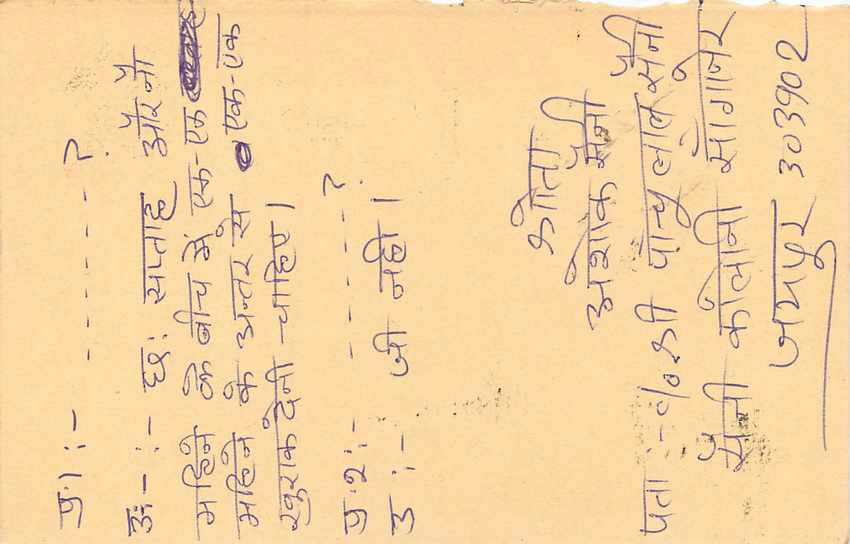 प्र.1:- ------?
उ:-:- छ: सप्ताह और नौ
महिने के बीच में एक-एक
महिने के अन्तर से एक-एक
खुराक देनी चाहिए।
प्र.2:- -----?
उ:- जी नही।
श्रोता
अशोक सैनी
पता:-℅ श्री पान्चु लाल सैनी
सैनी कॉलोनी सांगानेर
जयपुर 303902